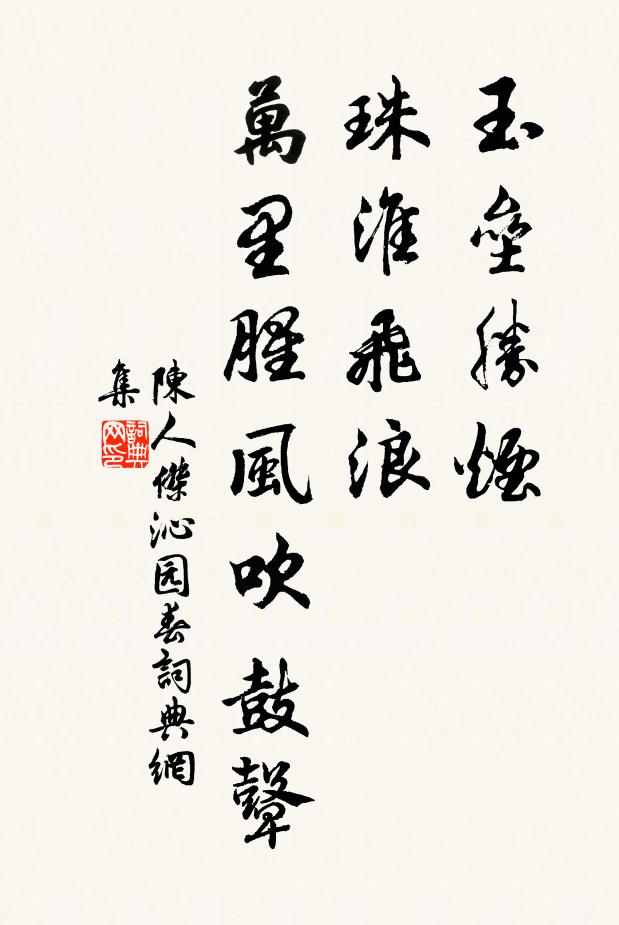 玉壘騰煙
珠淮飛浪
萬里腥風吹鼓鼙
陳人傑沁园春詞典網
集
詞典網印